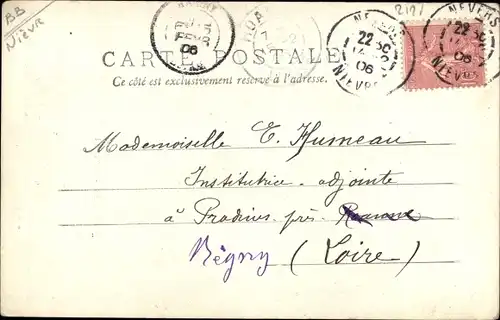 BB
Nièvre
2121
NEVERS
22 30
06
NIEVRE
NEVERS
22 30
06
NIEVRE
REGNY
FEVR
06
LOIRE
ROA
CARTE POSTALE
Ce côté est exclusivement reservé à l'adresse.
Mademoiselle E. Humeau
Institutrice-adjointe
à Pradines près Roanne
Régny (Loire)